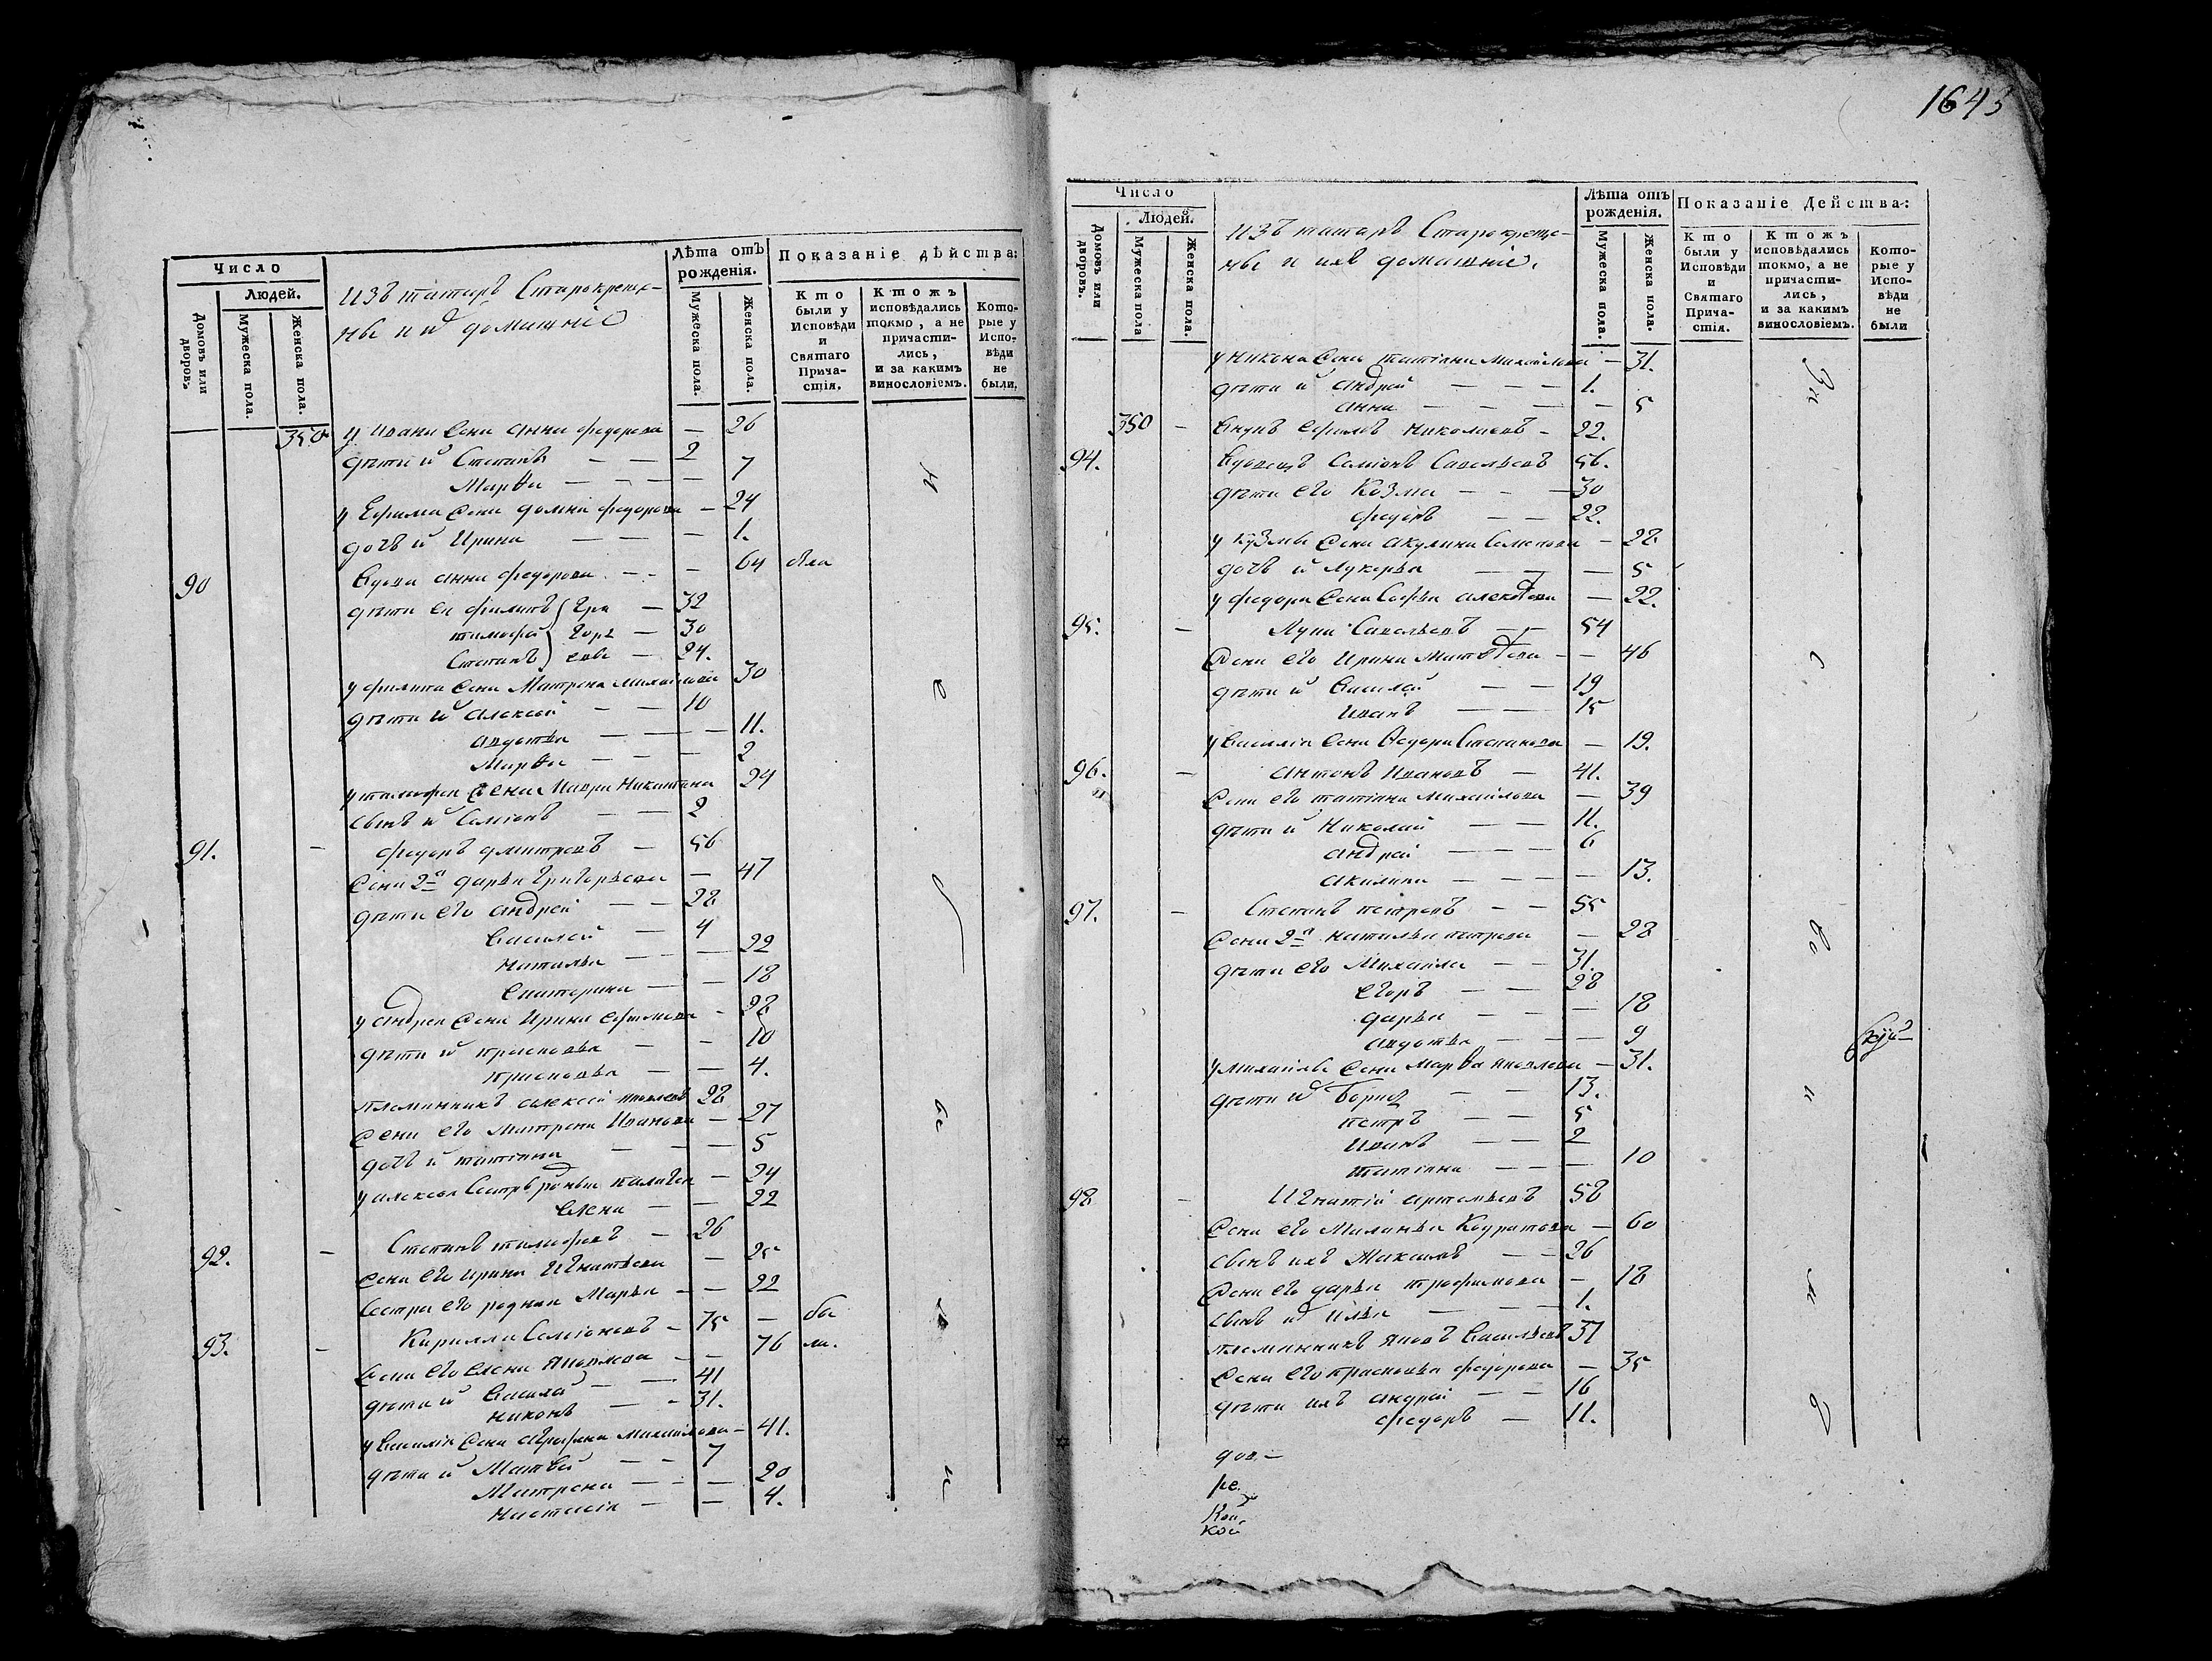 Число
Людей.
Домовъ или дворовъ.
Мужеска пола.
Женска пола.
изъ татаръ Старокреще-
ны и их домашніе
Лѣта отъ рожденія.
Мужеска пола.
Женска пола.
Показаніе дѣйства:
Кто были у Исповѣди и Святаго Прича-стія.
Ктожъ исповѣдались токмо, а не причасти-лись, и за какимъ винословіемъ.
Кото-рые у Испо-вѣди не были.
350 у Ивана жена Анна федорова — 26
дѣти и Степанъ — — 2
Марѳа — — — — 7
у Ефима жена Домна федорова — 24
дочь и Ирина — — — 1.
90 вдова Анна федорова — — 64 была
дѣти ея филипъ Гри — 32
тимофей горь — 30
Степанъ евы — 24.
у филипа жена Матрена Михайлова 30
дѣти и Алексей — — 10
Авдотья — — — 11.
Марѳа — — — 2
у тимофея жена Мавра Никитина 24
сынъ и Семіонъ — — 2
91. — федоръ дмитревъ — 56
жена 2я дарья Григорьева — 47
дѣти его Андрей — — 28
Василей — 4
Наталья — — — 22
Екатерина — — 18
у Андрея жена Ирина Ефимова — 28
дѣти и прасковья — — 10
прасковья — — 4.
племянникъ Алексей Яковлевъ 28
жена его Матрена Иванова — 27
дочь и татіана — — — 5
у Алексея сестры родные — 24
Елена — — 22
92. — Степанъ тимофеевъ — 26
жена его Ирина Игнатьева — 25
сестра его родная Марья — — 22
93. — Кирилла Семіоновъ — 75 — бы
жена его Елена Яковлева — — 76 ли.
дѣти и Василей — — 41
Никонъ — — 31.
у Василія жена Аграфена Михайлова — 41.
дѣти и Матвей — — 7
Матрена — — — 20
Настасія — — 4.
1643
Число
Людей.
Домовъ или дворовъ.
Мужеска пола
Женска пола.
Изъ татаръ Старокреще-
ны и ихъ домашніе.
Лѣта отъ рожденія.
Мужеска пола.
Женска пола.
Показаніе Действа:
Кто были у Исповѣди и Святаго Прича-стія.
Ктожъ исповѣдались токмо, а не причасти-лись, и за какимъ винословіемъ.
Кото-рые у Испо-вѣди не были
у Никона жена татіана Михайлова — 31.
дѣти и Андрей — — — 1.
Анна — — — — 5
350 — внукъ Ефимъ Николаевъ — 22.
94. вдовецъ Семіонъ Савельевъ 56.
дѣти его Козма — — — 30
федоръ — — 22.
у Кузмы жена Акулина Семенова — 28.
дочь и Лукерья — — — 5
у федора жена Софья — 22.
95. — Лука Савельевъ — — 54
жена его Ирина Матвѣева — — 46
дѣти и Василей — — 19
Иванъ — — — 15
у Василія жена Ѳедора Степанова — 19.
96. — Антонъ Ивановъ — 41.
жена его татіана Михайлова — 39
дѣти и Николай — — 11.
Андрей — — — 6
Акилина — — — — 13.
97. — Степанъ петровъ — — 55
жена 2я Наталья петрова — 28
дѣти его Михайла — — 31.
Егоръ — — 28
дарья — — — 18
Авдотья — — — 9
у Михайлы жена Марѳа Яковлева — 31.
дѣти и Борисъ — — 13.
петръ — — 5
Иванъ — — 2
татіана — — — 10
98 — Игнатій Артемьевъ 58
жена его Миланья — 60
сынъ ихъ Максимъ — — 26
жена его дарья трофимова — 18
сынъ и Илья — — — 1.
племянникъ Яковъ Васильевъ 37
жена его прасковья федорова — 35
дѣти ихъ Андрей — — 16
федоръ — 11.